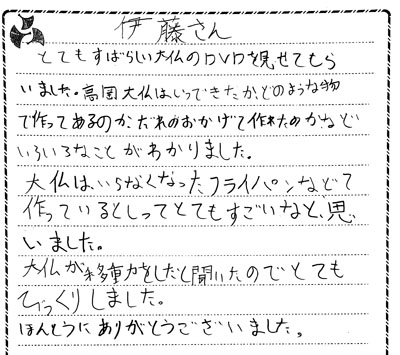 伊藤さん
とてもすばらしい大仏のDVDを見せてもら
いました。高岡大仏は、いつできたか、どのような物
で作ってあるのか、だれのおかげで作れたのかなど
いろいろなことがわかりました。
大仏は、いらなくなったフライパンなどで
作っているとしってとてもすごいなと、思
いました。
大仏が移動をしたと聞いたのでとても
びっくりしました。
ほんとうにありがとうございました。